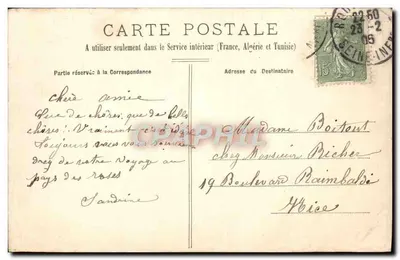 CARTE POSTALE
A utiliser seulement dans le Service intérieur (France, Algérie et Tunisie)
Partie réservée à la Correspondance
Adresse du Destinataire
22 50
23 - 2
05
SEINE-INFRE
15
chère amie
que de choses, que de belles
choses! Vraiment
Toujours vous vous
drez de votre voyage au
pays des roses
Sandrine
Madame Boitout
chez Monsieur Richer
19 Boulevard Raimbaldi
Nice